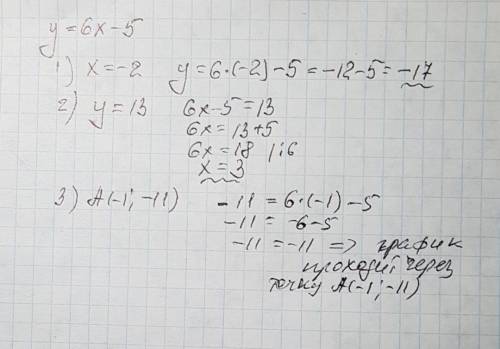 y=6x-5
1) x=-2 y=6·(-2)-5=-12-5=-17
2) y=13 6x-5=13
6x=13+5
6x=18 |:6
x=3
3) A(-1; -11) -11=6·(-1)-5
-11=-6-5
-11=-11 => график
проходит через
точку A(-1;-11)